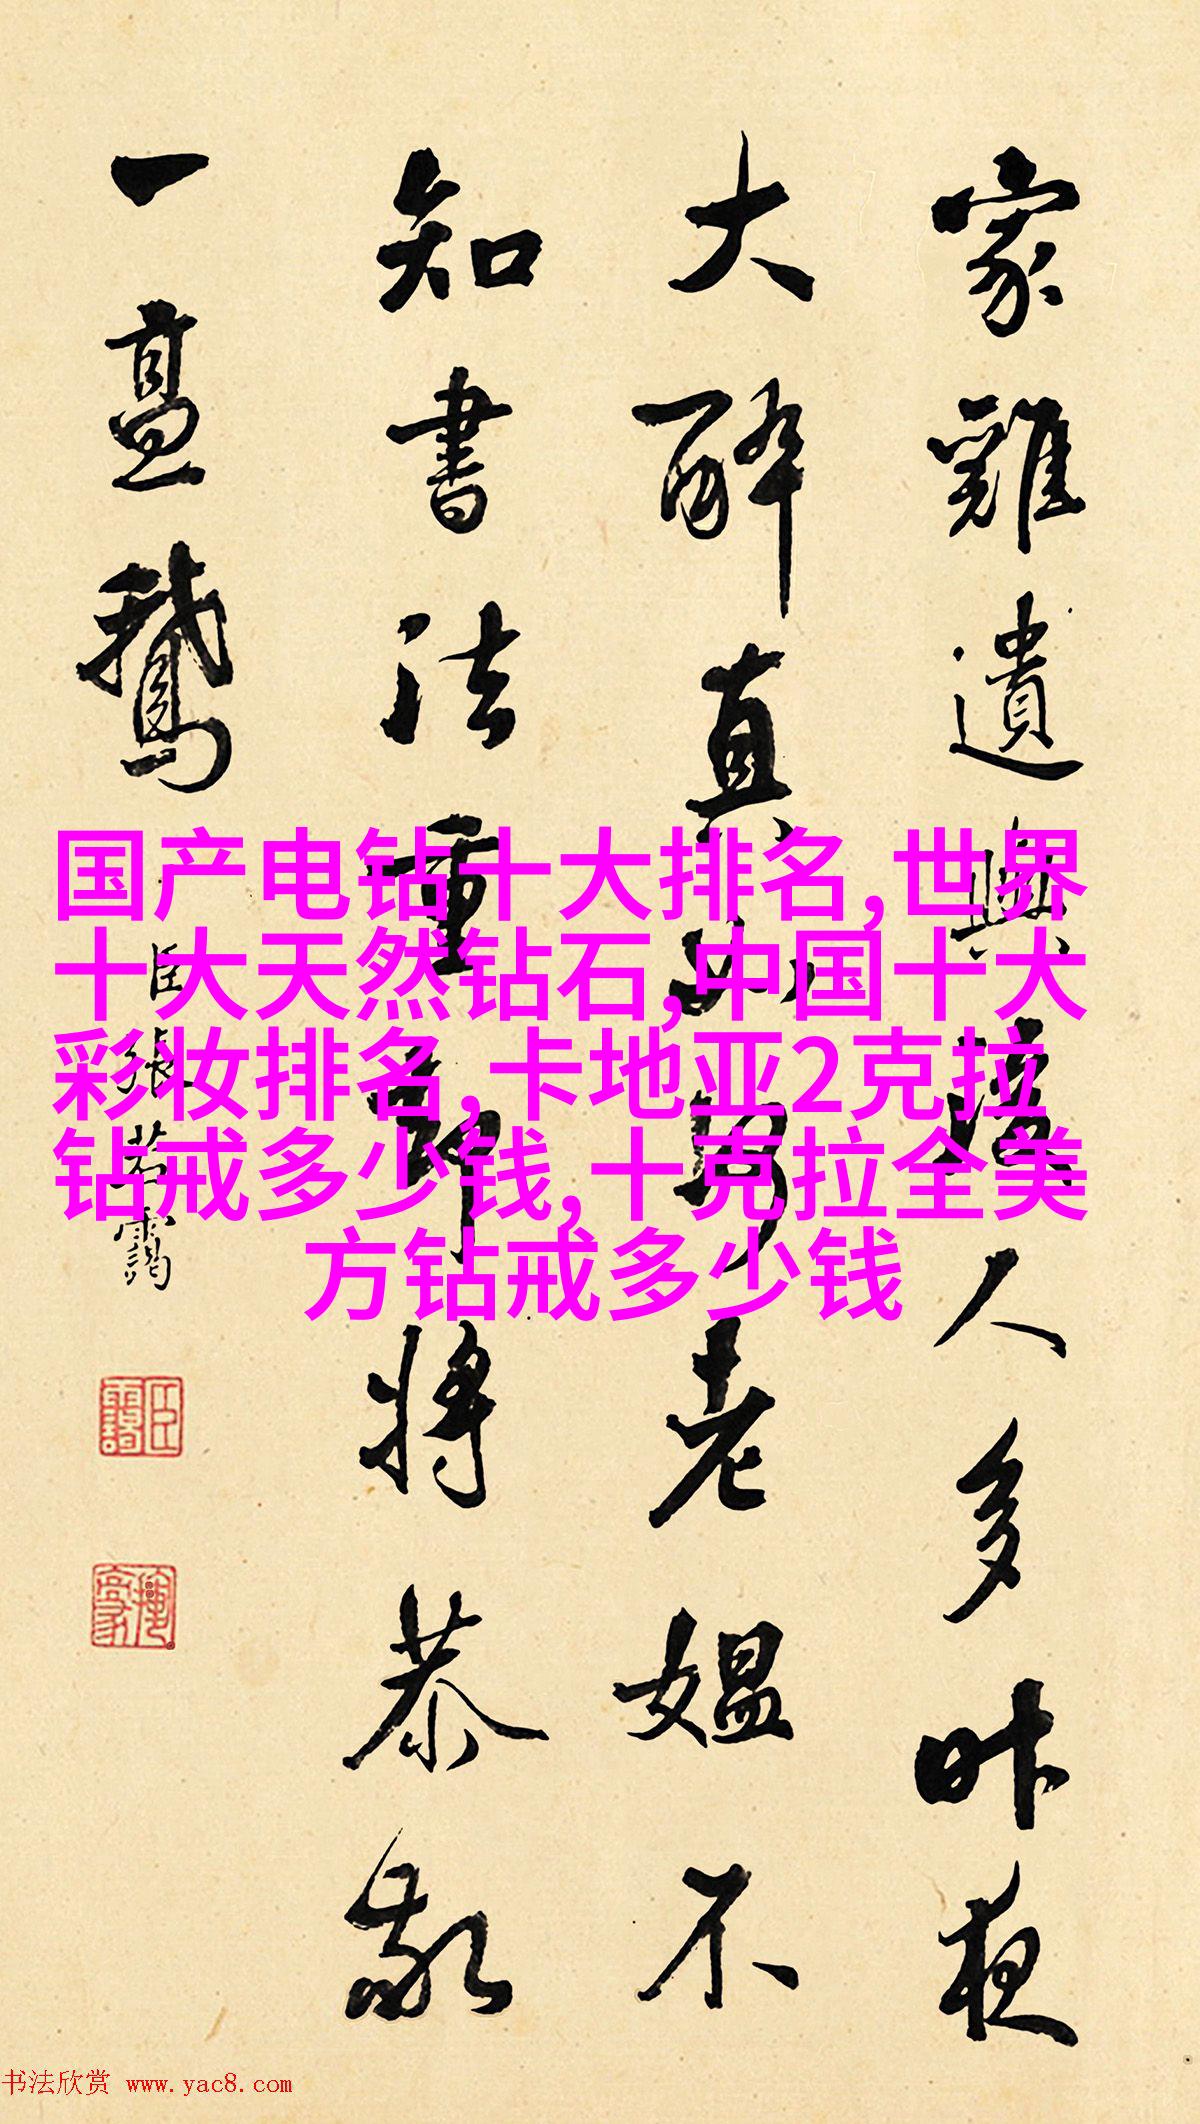 家雞遺興人多昨夜
大醉直老媼不
知書法重即將恭敬
一鵝
臣張若靄
国产电钻十大排名,世界
十大天然钻石,中国十大
彩妆排名,卡地亚2克拉
钻戒多少钱,十克拉全美
方钻戒多少钱
书法欣赏 www.yac8.com